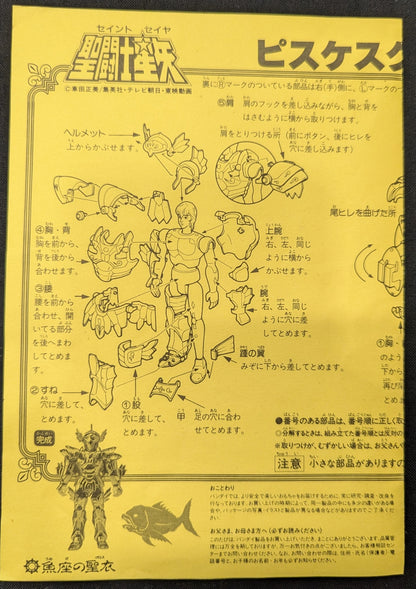 セイント セイヤ
聖闘士星矢
©車田正美/集英社・テレビ朝日・東映動画
ピスケスク
裏にⓇマークのついている部品は右(手)側に、Ⓛマークのつ
⑤肩 肩のフックを差し込みながら、胸と背を
はさむように横から取りつけます。
肩をとりつける所(前にボタン、後にヒレを
穴に差し込みます)
ヘルメット
上からかぶせます。
尾ヒレを曲げた所
④胸・背
胸を前から、
背を後から
合わせます。
上腕
右、左、同じ
ように横から
かぶせます。
③腰
腰を前から
合わせ、開
いてる部分
を後へまわ
してとめま
す。
腕
右、左、同じ
ように穴に差
してとめます。
踵の翼
みぞに下から差してとめます。
②すね
穴に差して
とめます。
①股
穴に差して、
とめます。
甲 足の穴に合わ
せてとめます。
①胸・
●番号のある部品は、番号順に正しく取
○分解するときは、組み立てた番号とは反対の
※取りつけが、むずかしい場合は、お父さん
注意 小さな部品がありますの
完成
魚座の聖衣
おことわり
バンダイでは、より安全で楽しいおもちゃをお届けするために、常に研究・調査・改良を
行なっております。お買い上げの時期によって、同一製品の中にも多少の違いがある場
合や、パッケージの写真・イラストと製品が異なる場合などがありますのでご了承くだ
さい。
お父さま、お母さま方へ(必ずお読みください)
このたびは、バンダイ製品をお買い上げいただき、まことにありがとうございます。品質管
理には万全を期しておりますが、万一お気付きの点がございましたら、お客様相談セン
ターまでお問い合わせください。なお、お問い合わせの際は、住所・氏名(保護者)電
話番号と、お子様のお名前・お年も必ずお知らせください。